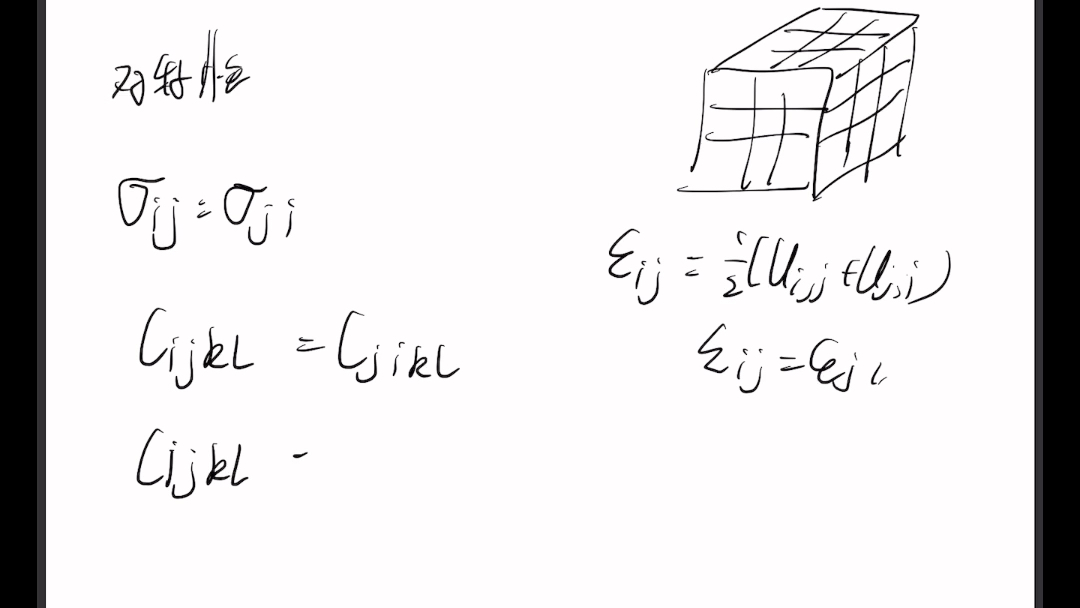 对称性
σij = σji
Cijkl = Cjikl
Cijkl -
εij = 1/2(ui,j + uj,i)
εij = εji